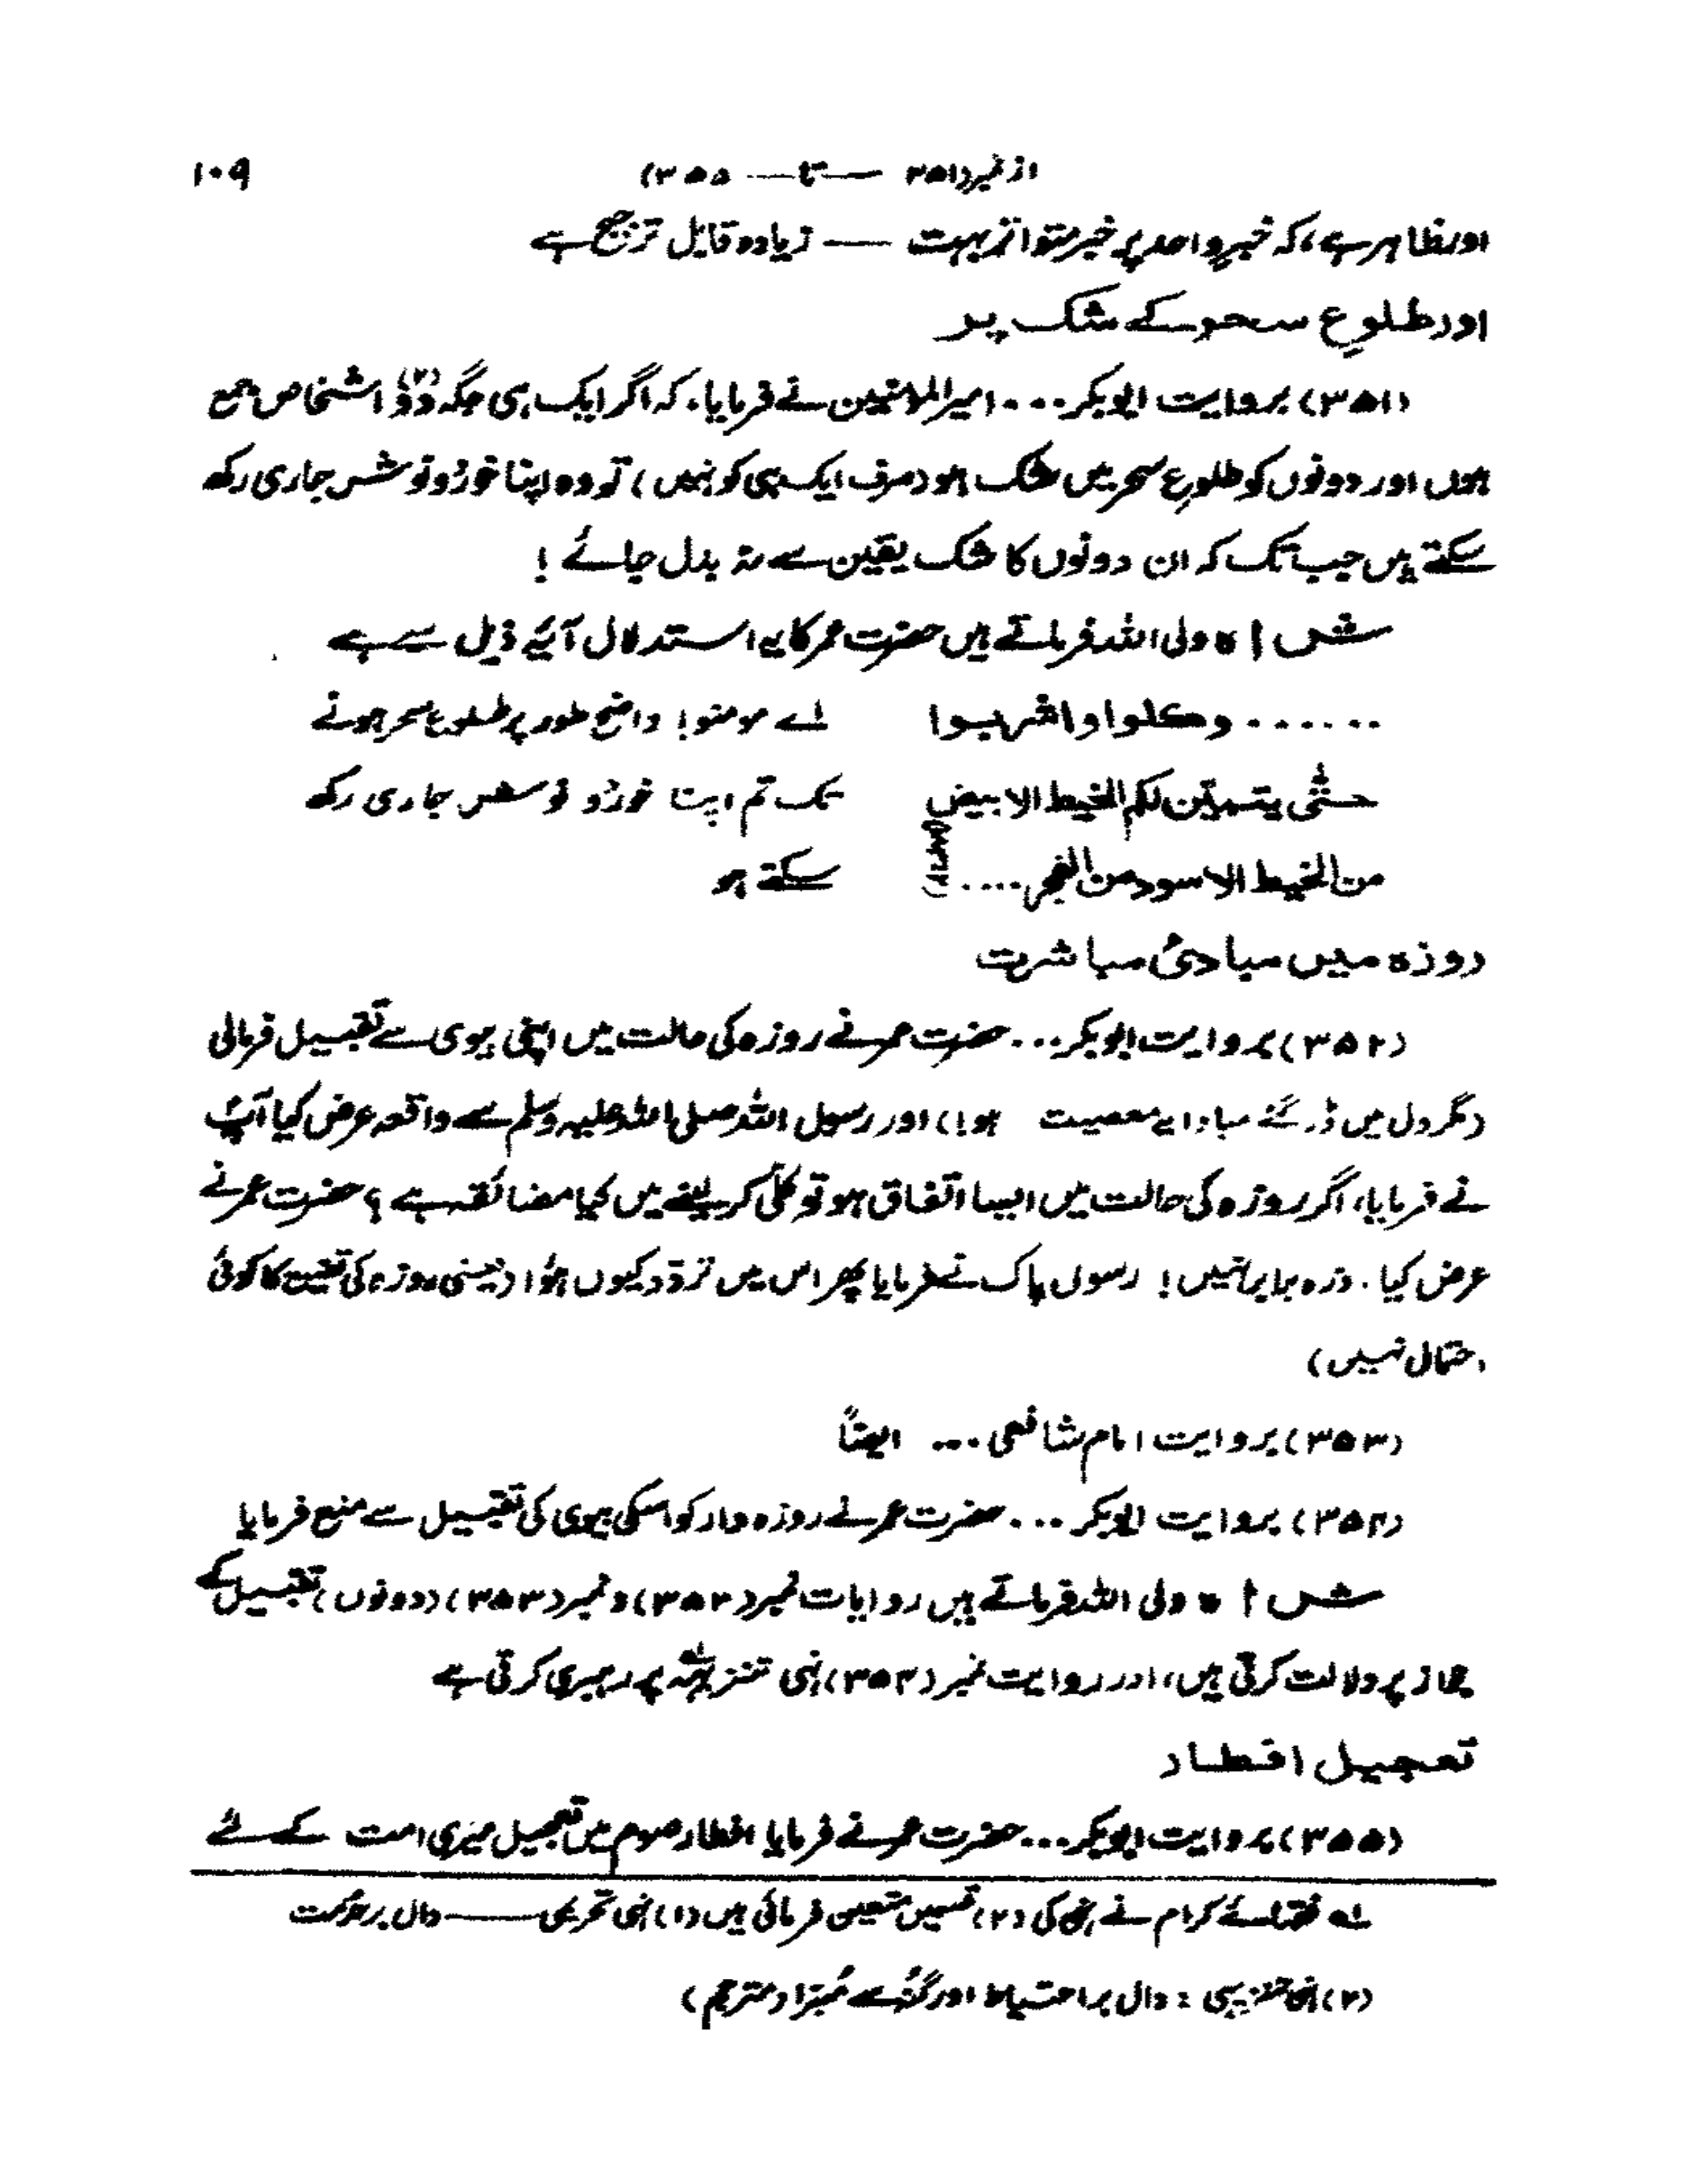 از نمبر (۳۵۱ — تا — ۳۵۵) ۱۰۹
اور ظاہر ہے، کہ خبرِ واحد پر خبر متواتر بہت — زیادہ قابل ترجیح ہے
اور طلوعِ سحر کے شک پر
(۳۵۱) بروایت ابوبکر... امیر المؤمنین نے فرمایا، کہ اگر ایک ہی جگہ دو (۲) اشخاص جمع
ہوں اور دونوں کو طلوعِ سحر میں شک ہو (صرف ایک ہی کو نہیں) تو وہ اپنا خورد و نوش جاری رکھ
سکتے ہیں جب تک کہ ان دونوں کا شک یقین سے نہ بدل جائے!
ش ۱ ہ ولی اللہ فرماتے ہیں حضرت عمر کا یہ استدلال آیۂ ذیل سے ہے
...... وکلوا واشربوا اے مومنو! واضح طور پر طلوع سحر ہونے
حتّٰی یتبیّن لکم الخیط الابیض تک تم اپنا خورد و نوش جاری رکھ
من الخیط الاسود من الفجر.... سکتے ہو
روزہ میں مبادیٔ مباشرت
(۳۵۲) بروایت ابوبکر... حضرت عمر نے روزہ کی حالت میں اپنی بیوی سے تقبیل فرمالی
(مگر دل میں ڈر گئے مبادا یہ معصیت ہو!) اور رسول اللہ صلی اللہ علیہ وسلم سے واقعہ عرض کیا آپؐ
نے فرمایا، اگر روزہ کی حالت میں ایسا اتفاق ہو تو کلّی کر لینے میں کیا مضائقہ ہے؟ حضرت عمر نے
عرض کیا. ذرہ برابر نہیں! رسول پاک نے فرمایا پھر اس میں تردّد کیوں ہؤا (یعنی روزہ کی کا کوئی
احتمال نہیں)
(۳۵۳) بروایت امام شافعی ... ایضاً
(۳۵۴) بروایت ابوبکر ... حضرت عمر نے روزہ دار کو اسکی بیوی کی تقبیل سے منع فرمایا
ش ۱ ہ ولی اللہ فرماتے ہیں روایات نمبر (۳۵۲) و نمبر (۳۵۳) (دونوں) تقبیل کے
جواز پر دلالت کرتی ہیں، اور روایت نمبر (۳۵۴) نہی تنزیہہ پر رہبری کرتی ہے
تعجیل افطار
(۳۵۵) بروایت ابوبکر... حضرت عمر نے فرمایا افطار صوم میں تعجیل میری امت کے لئے
لہ فقہائے کرام نے نہی کی (۲) قسمیں متعین فرمائی ہیں (۱) نہی تحریمی — دال بر حرمت
(۲) نہی تنزیہی : دال بر احتیاط اور گنہ سے مُبرّا (مترجم)